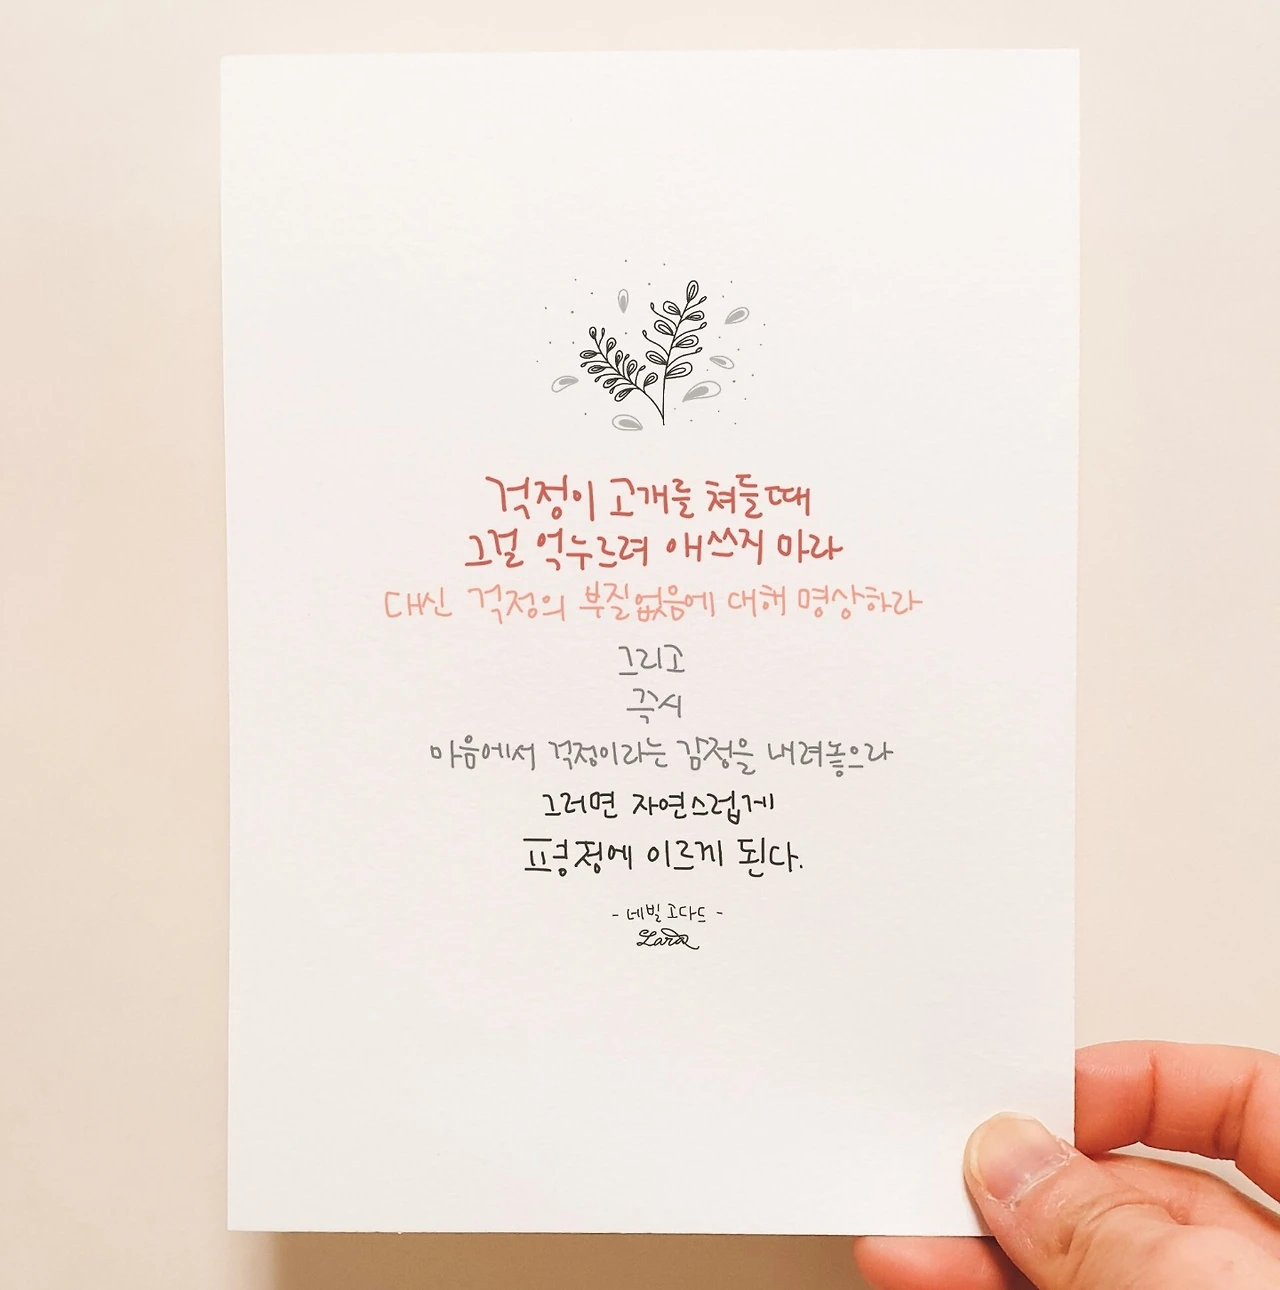 걱정이 고개를 쳐들때
그걸 억누르려 애쓰지 마라
대신 걱정의 부질없음에 대해 명상하라
그리고
즉시
마음에서 걱정이라는 감정을 내려놓으라
그러면 자연스럽게
평정에 이르게 된다.
- 네빌 고다드 -
Lara